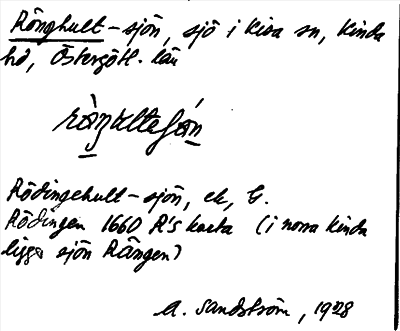 Rönghult-sjön, sjö i Kisa sn, Kinda
hd, Östergötl. län
Rödingehult-sjön, ek, G.
Rödingen 1660 R's karta (i norra Kinda
ligga sjön Rängen)
A. Sandström, 1928